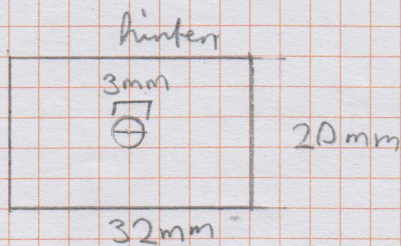 hinten
3mm
20mm
32mm